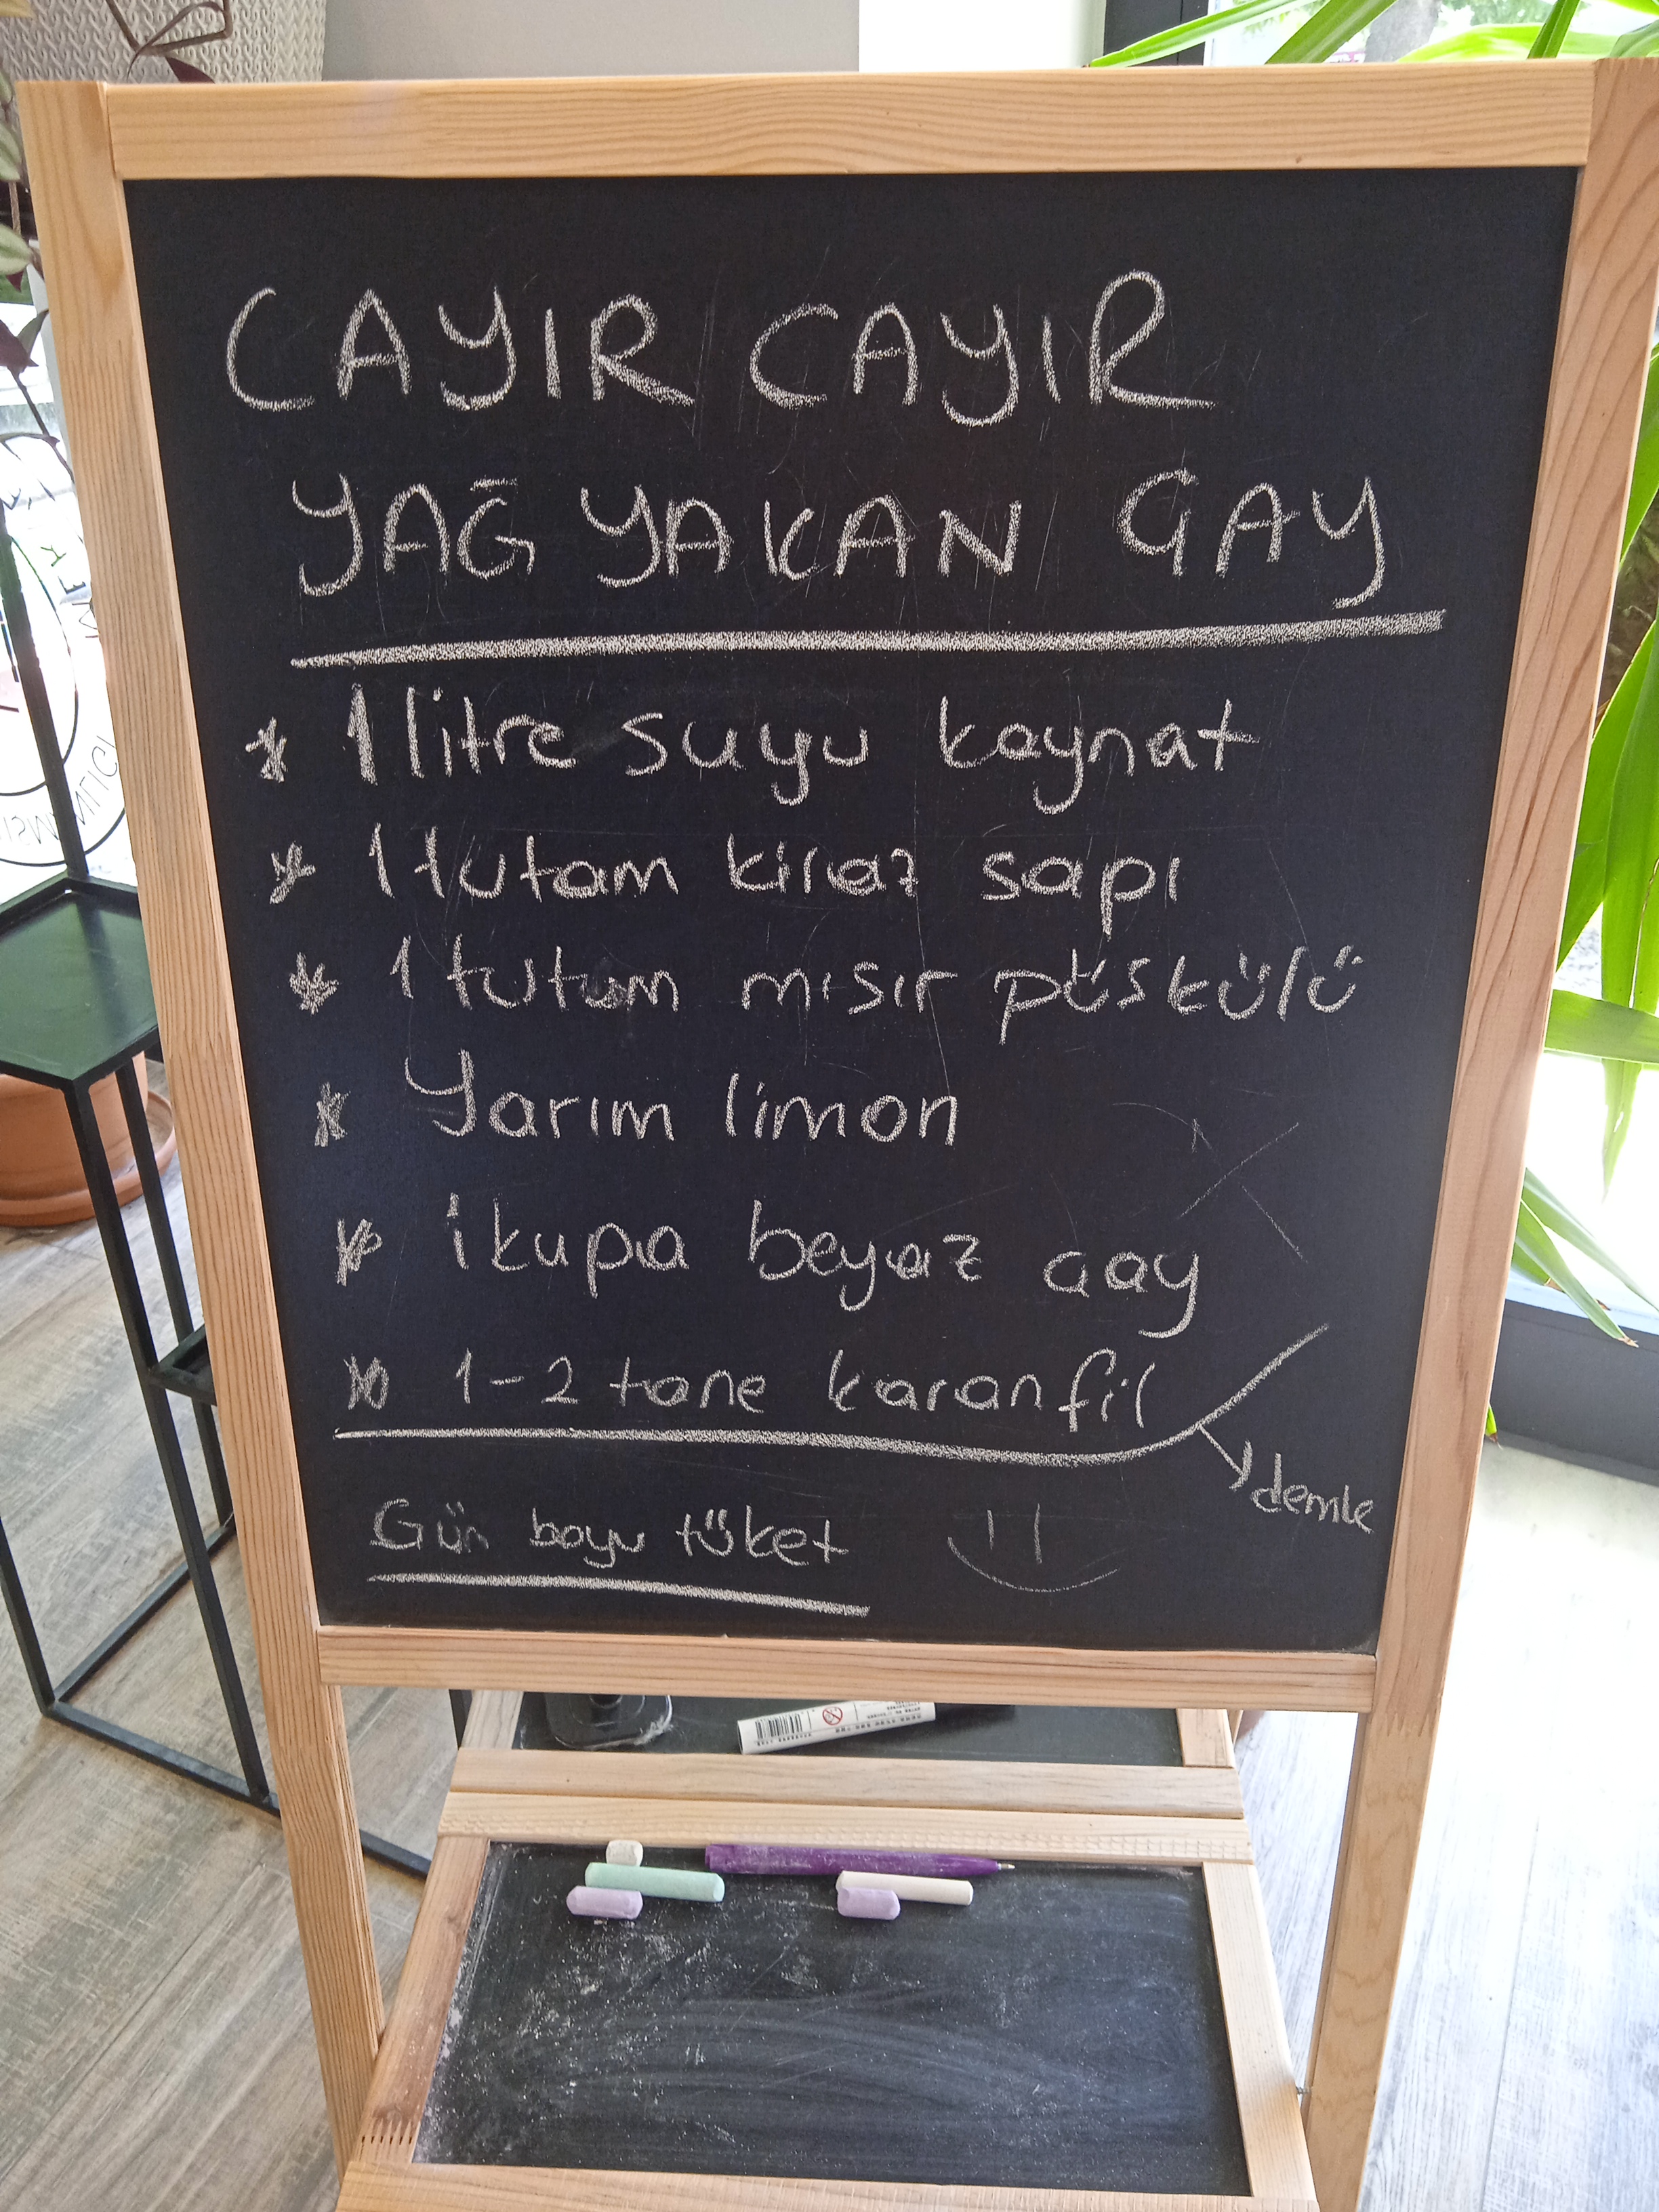 CAYIR CAYIR
YAĞ YAKAN ÇAY
* 1 litre suyu kaynat
* 1 tutam kiraz sapı
* 1 tutum mısır püskülü
* Yarım limon
* 1 kupa beyaz çay
* 1-2 tane karanfil
demle
Gün boyu tüket